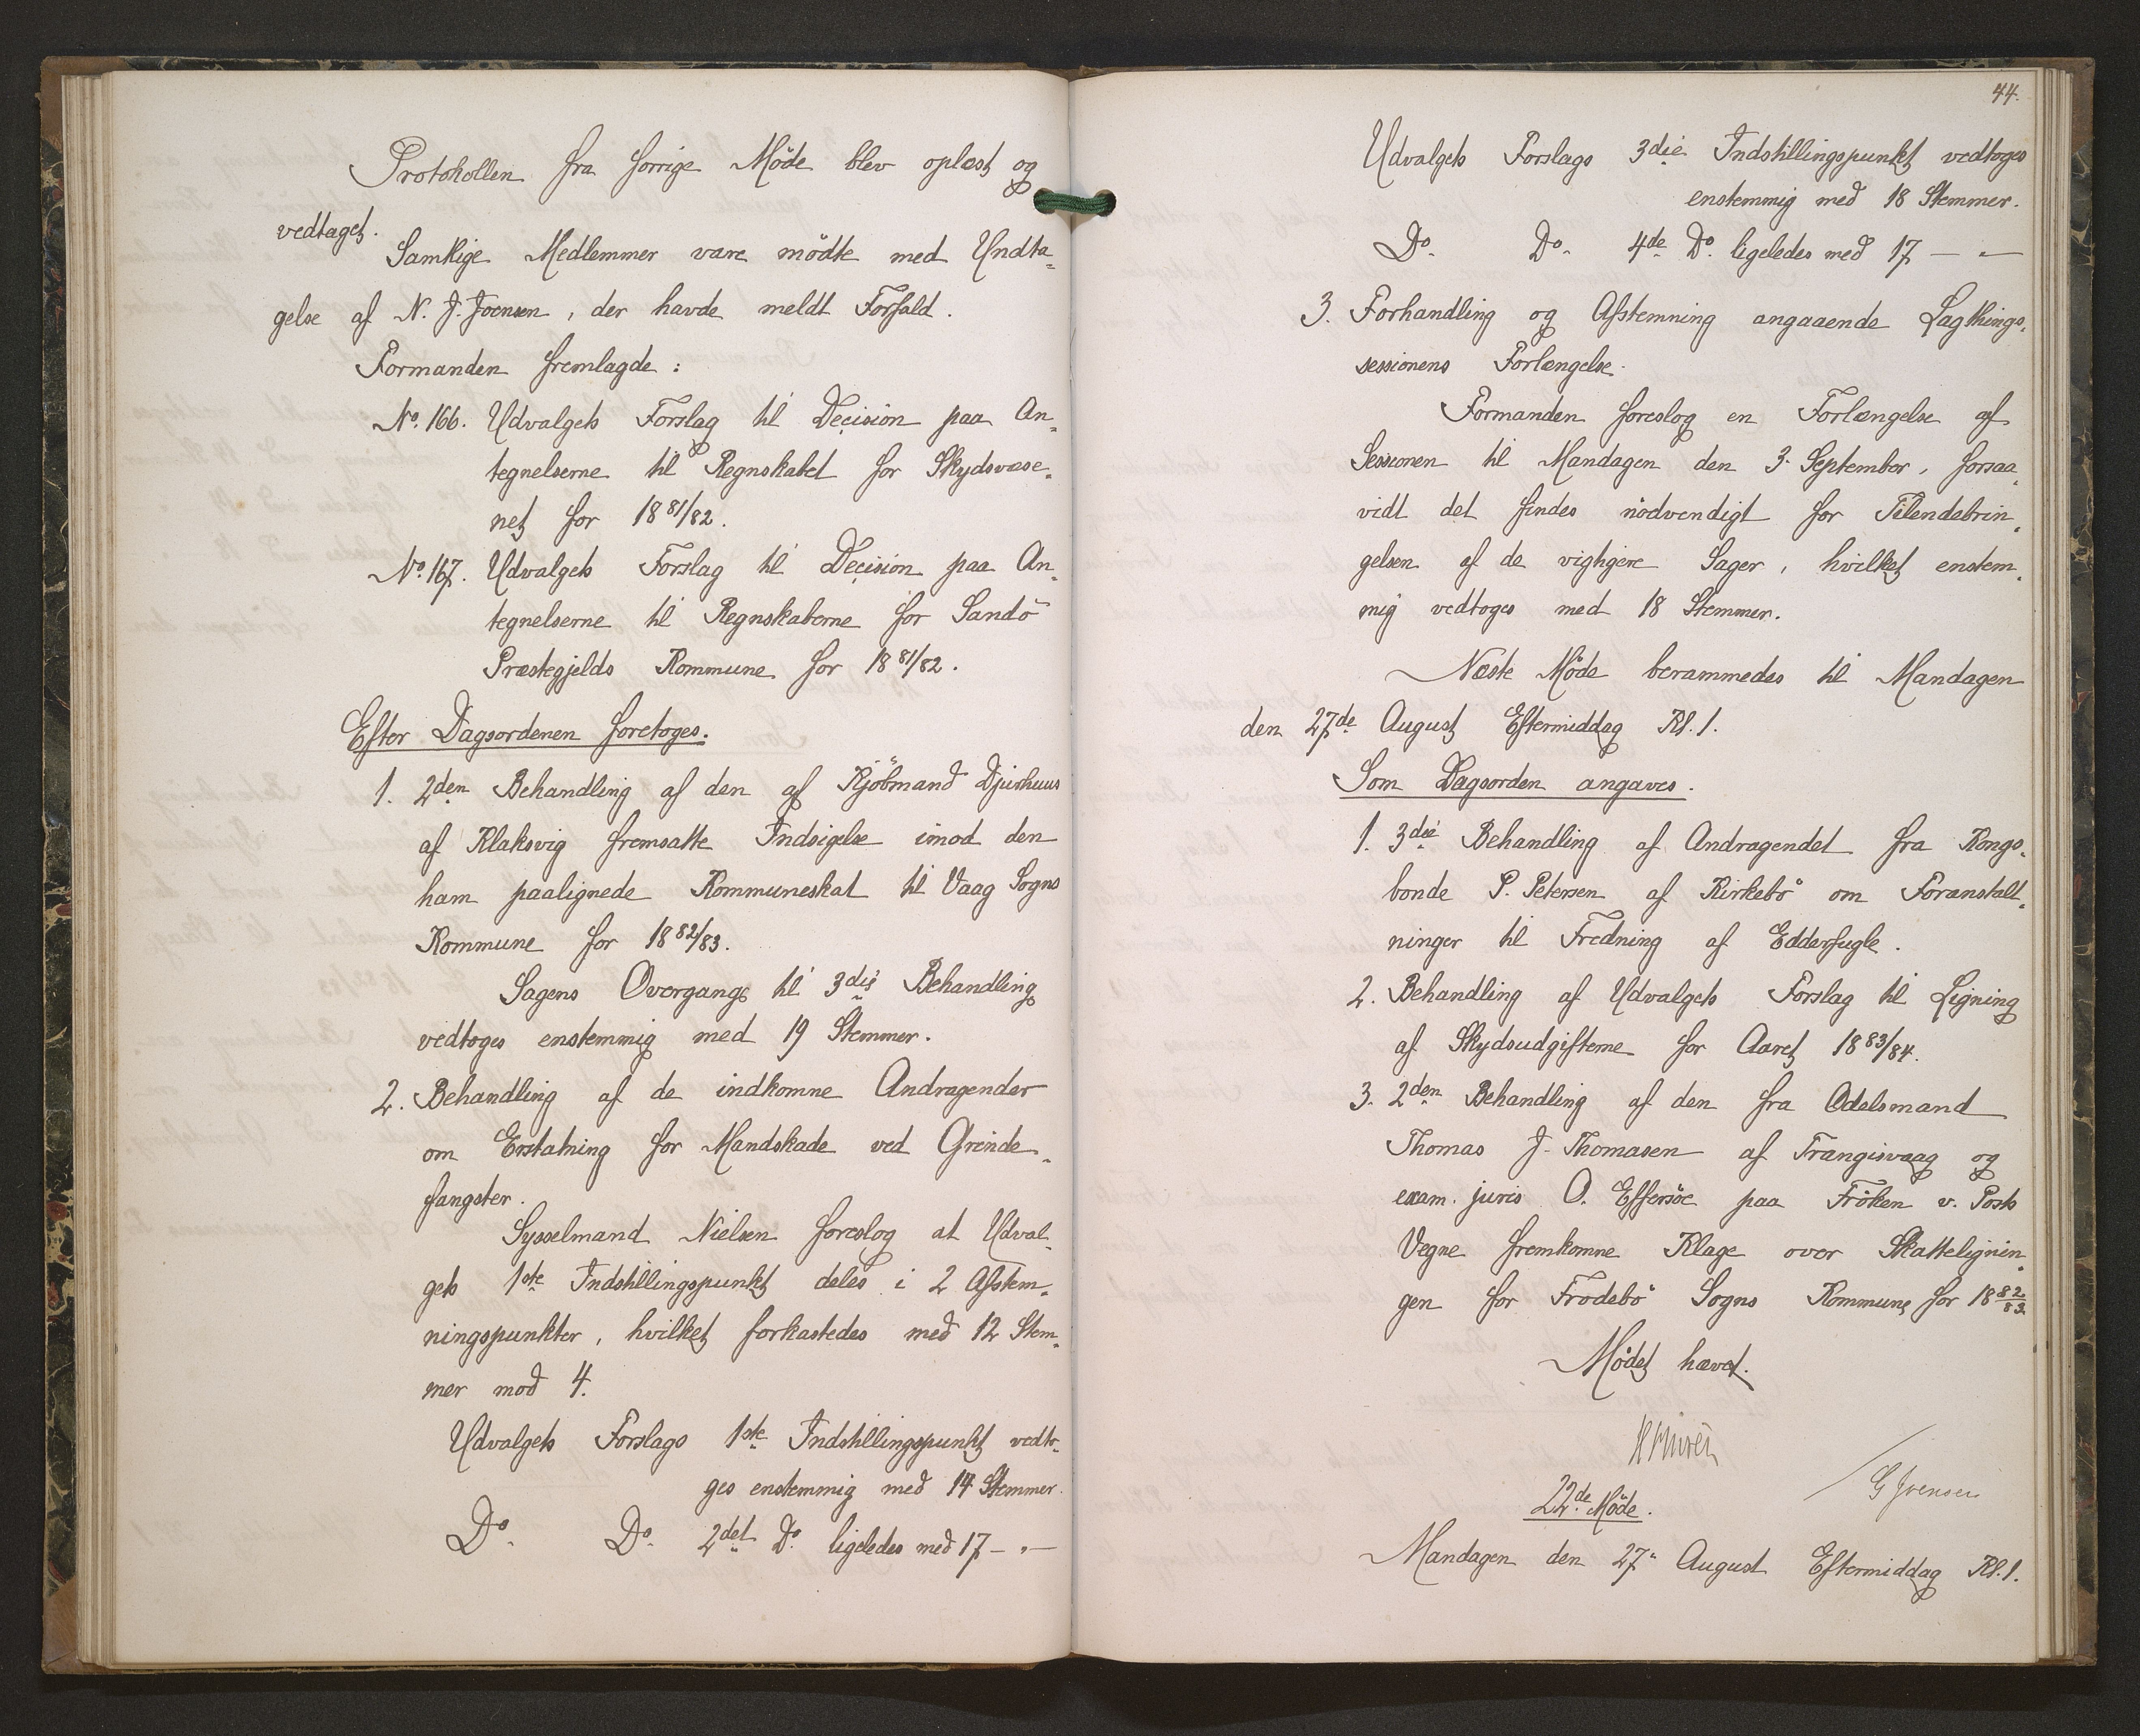 Protokollen fra forrige Möde blev oplæst og
vedtaget.
Samtlige Medlemmer vare mödte med Undta=
gelse af N. J. Joensen, der havde meldt Forfald.
Formanden fremlagde:
No. 166. Udvalgets Forslag til Decision paa An=
tegnelserne til Regnskabet for Skydsvæse=
net for 1881/82.
No. 167. Udvalgets Forslag til Decision paa An=
tegnelserne til Regnskaberne for Sandö
Præstegjelds Kommune for 1881/82.
Efter Dagsordenen foretoges.
1. 2den Behandling af den af Kjöbmand Djurhuus
af Klaksvig fremsatte Indsigelse imod den
ham paalignede Kommuneskat til Vaag Sogns
Kommune for 1882/83.
Sagens Overgang til 3die Behandling
vedtoges enstemmig med 19 Stemmer.
2. Behandling af de indkomne Andragender
om Erstatning for Mandskade ved Grinde=
fangster.
Sysselmand Nielsen foreslog at Udval=
gets 1ste Indstillingspunkt deles i 2 Afstem=
ningspunkter, hvilket forkastedes med 12 Stem=
mer mod 4.
Udvalgets Forslags 1ste Indstillingspunkt vedto=
ges enstemmig med 14 Stemmer.
Do. Do. 2det Do. ligeledes med 17 — " —
44.
Udvalgets Forslags 3die Indstillingspunkt vedtoges
enstemmig med 18 Stemmer.
Do. Do. 4de Do. ligeledes med 17 — " —
3. Forhandling og Afstemning angaaende Lagthings=
sessionens Forlængelse.
Formanden foreslog en Forlængelse af
Sessionen til Mandagen den 3. September, forsaa=
vidt det findes nödvendigt for Tilendebrin=
gelsen af de vigtigere Sager, hvilket enstem=
mig vedtoges med 18 Stemmer.
Næste Möde berammedes til Mandagen
den 27de August Eftermiddag Kl. 1.
Som Dagsorden angaves.
1. 3die Behandling af Andragendet fra Kongs=
bonde P. Petersen af Kirkebö om Foranstalt=
ninger til Fredning af Edderfugle.
2. Behandling af Udvalgets Forslag til Ligning
af Skydsudgifterne for Aaret 1883/84.
3. 2den Behandling af den fra Odelsmand
Thomas J. Thomasen af Trangisvaag og
exam. juris O. Effersöe paa Fröken v. Posts
Vegne fremkomne Klage over Skattelignin=
gen for Frodebö Sogns Kommune for 1882/83.
Mödet hævet.
G Joensen
22de Möde.
Mandagen den 27. August Eftermiddag Kl. 1.